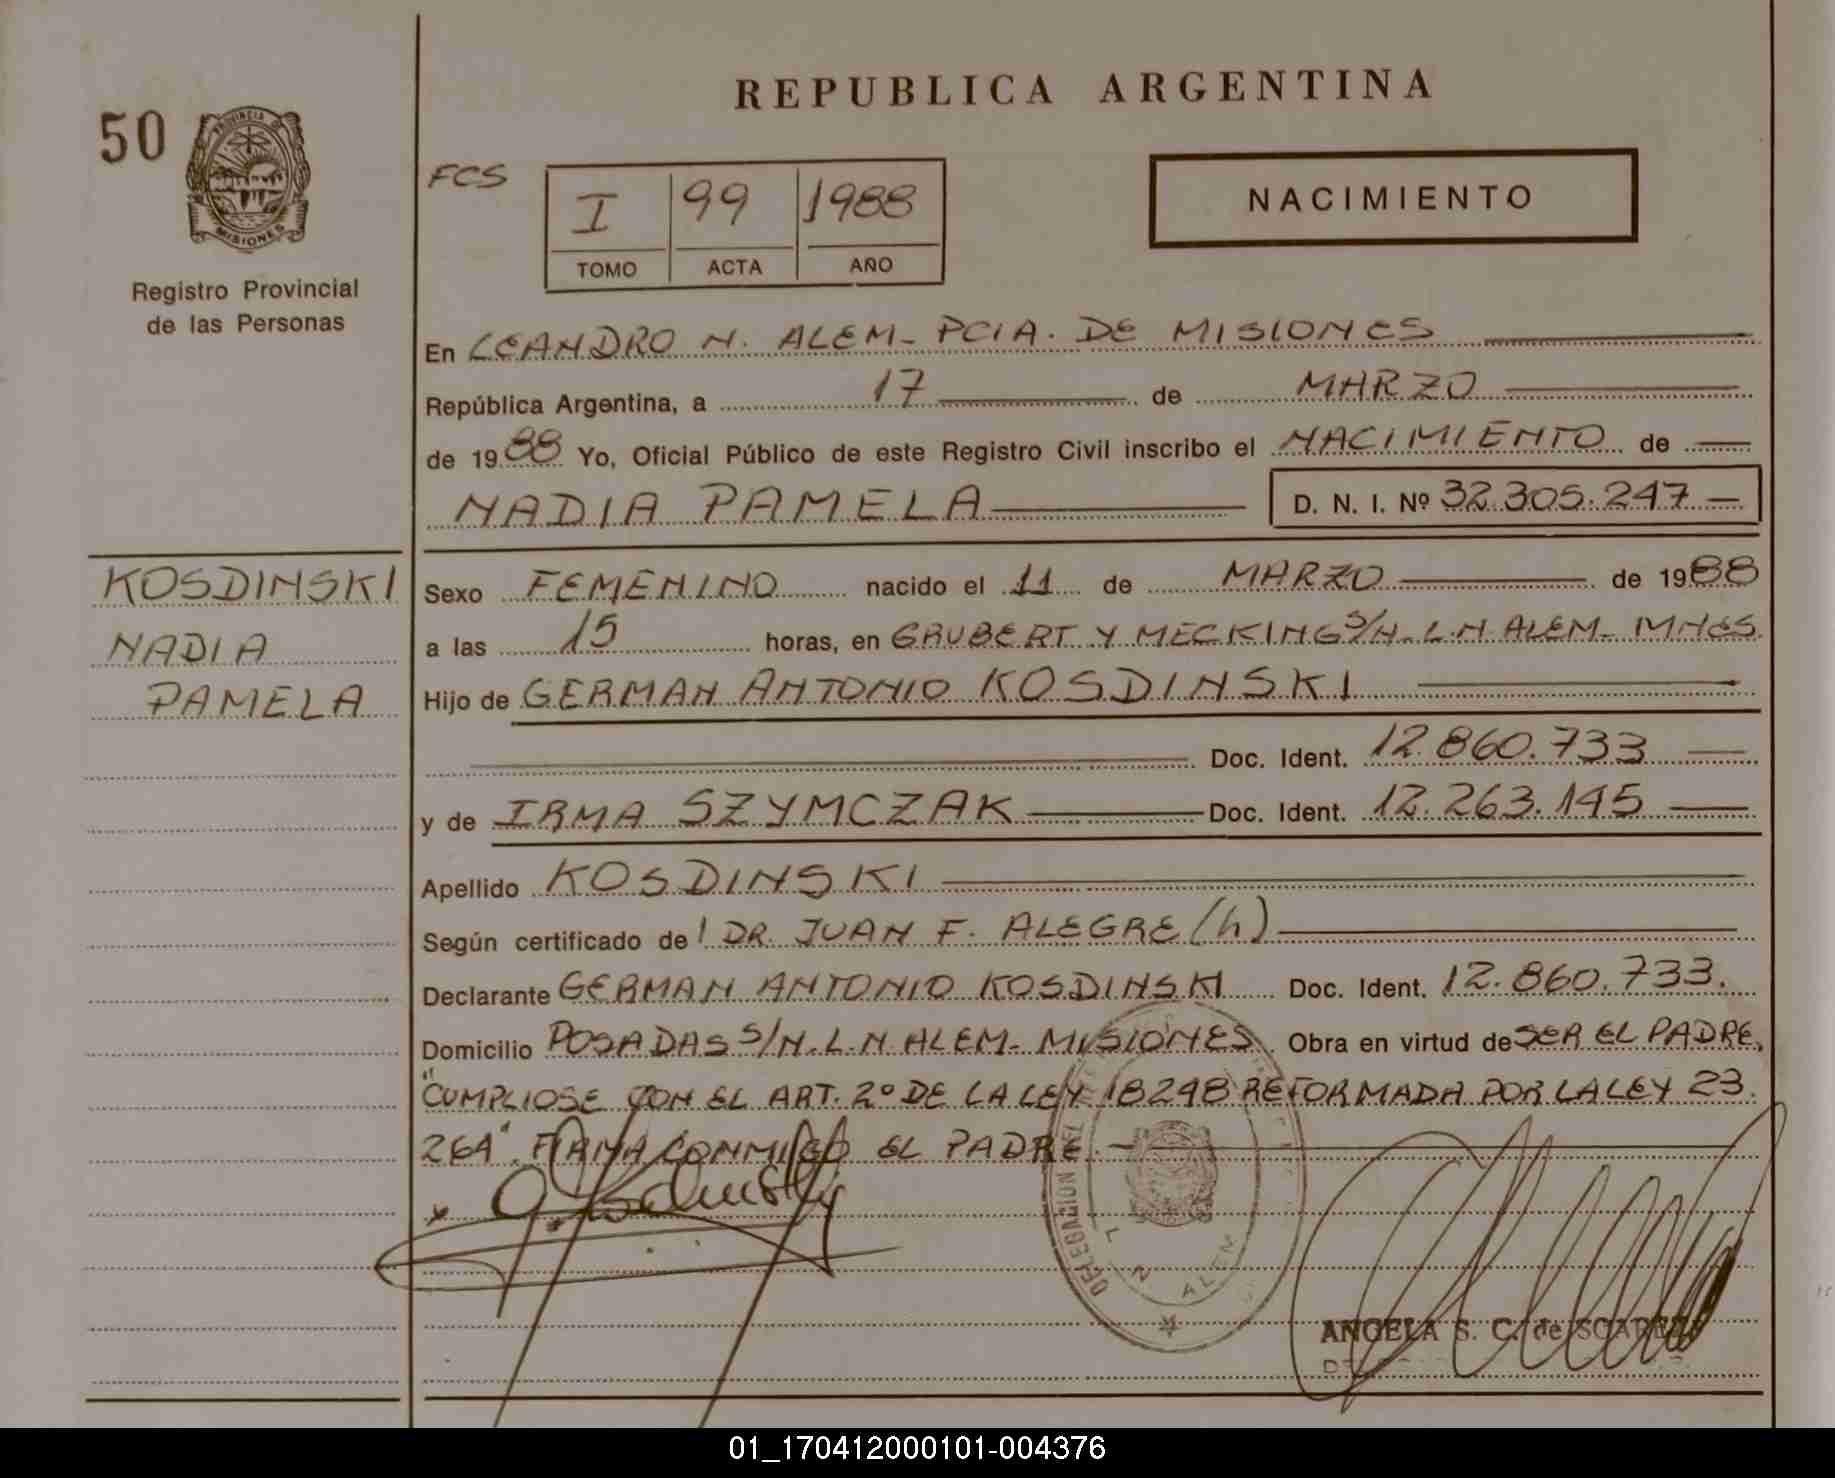 REPUBLICA ARGENTINA
50
PROVINCIA DE
MISIONES
Registro Provincial
de las Personas
FCS
I 99 1988
TOMO ACTA AÑO
NACIMIENTO
En LEANDRO N. ALEM - PCIA. DE MISIONES
República Argentina, a 17 de MARZO
de 1988 Yo, Oficial Público de este Registro Civil inscribo el NACIMIENTO de
NADIA PAMELA D. N. I. Nº 32.305.247
KOSDINSKI
NADIA
PAMELA
Sexo FEMENINO nacido el 11 de MARZO de 1988
a las 15 horas, en GRUBERT Y MECKING S/N - L.N ALEM - MNES.
Hijo de GERMAN ANTONIO KOSDINSKI
Doc. Ident. 12.860.733
y de IRMA SZYMCZAK Doc. Ident. 12.263.145
Apellido KOSDINSKI
Según certificado de DR. JUAN F. ALEGRE (h)
Declarante GERMAN ANTONIO KOSDINSKI Doc. Ident. 12.860.733.
Domicilio POSADAS S/N. L.N ALEM - MISIONES Obra en virtud de SER EL PADRE.
"CUMPLIOSE CON EL ART. 2º DE LA LEY 18248 REFORMADA POR LA LEY 23.
264". FIRMA CONMIGO EL PADRE. -
DELEGACION DEL
L N ALEM
ANGELA S. C. de SOAREZ
01_170412000101-004376